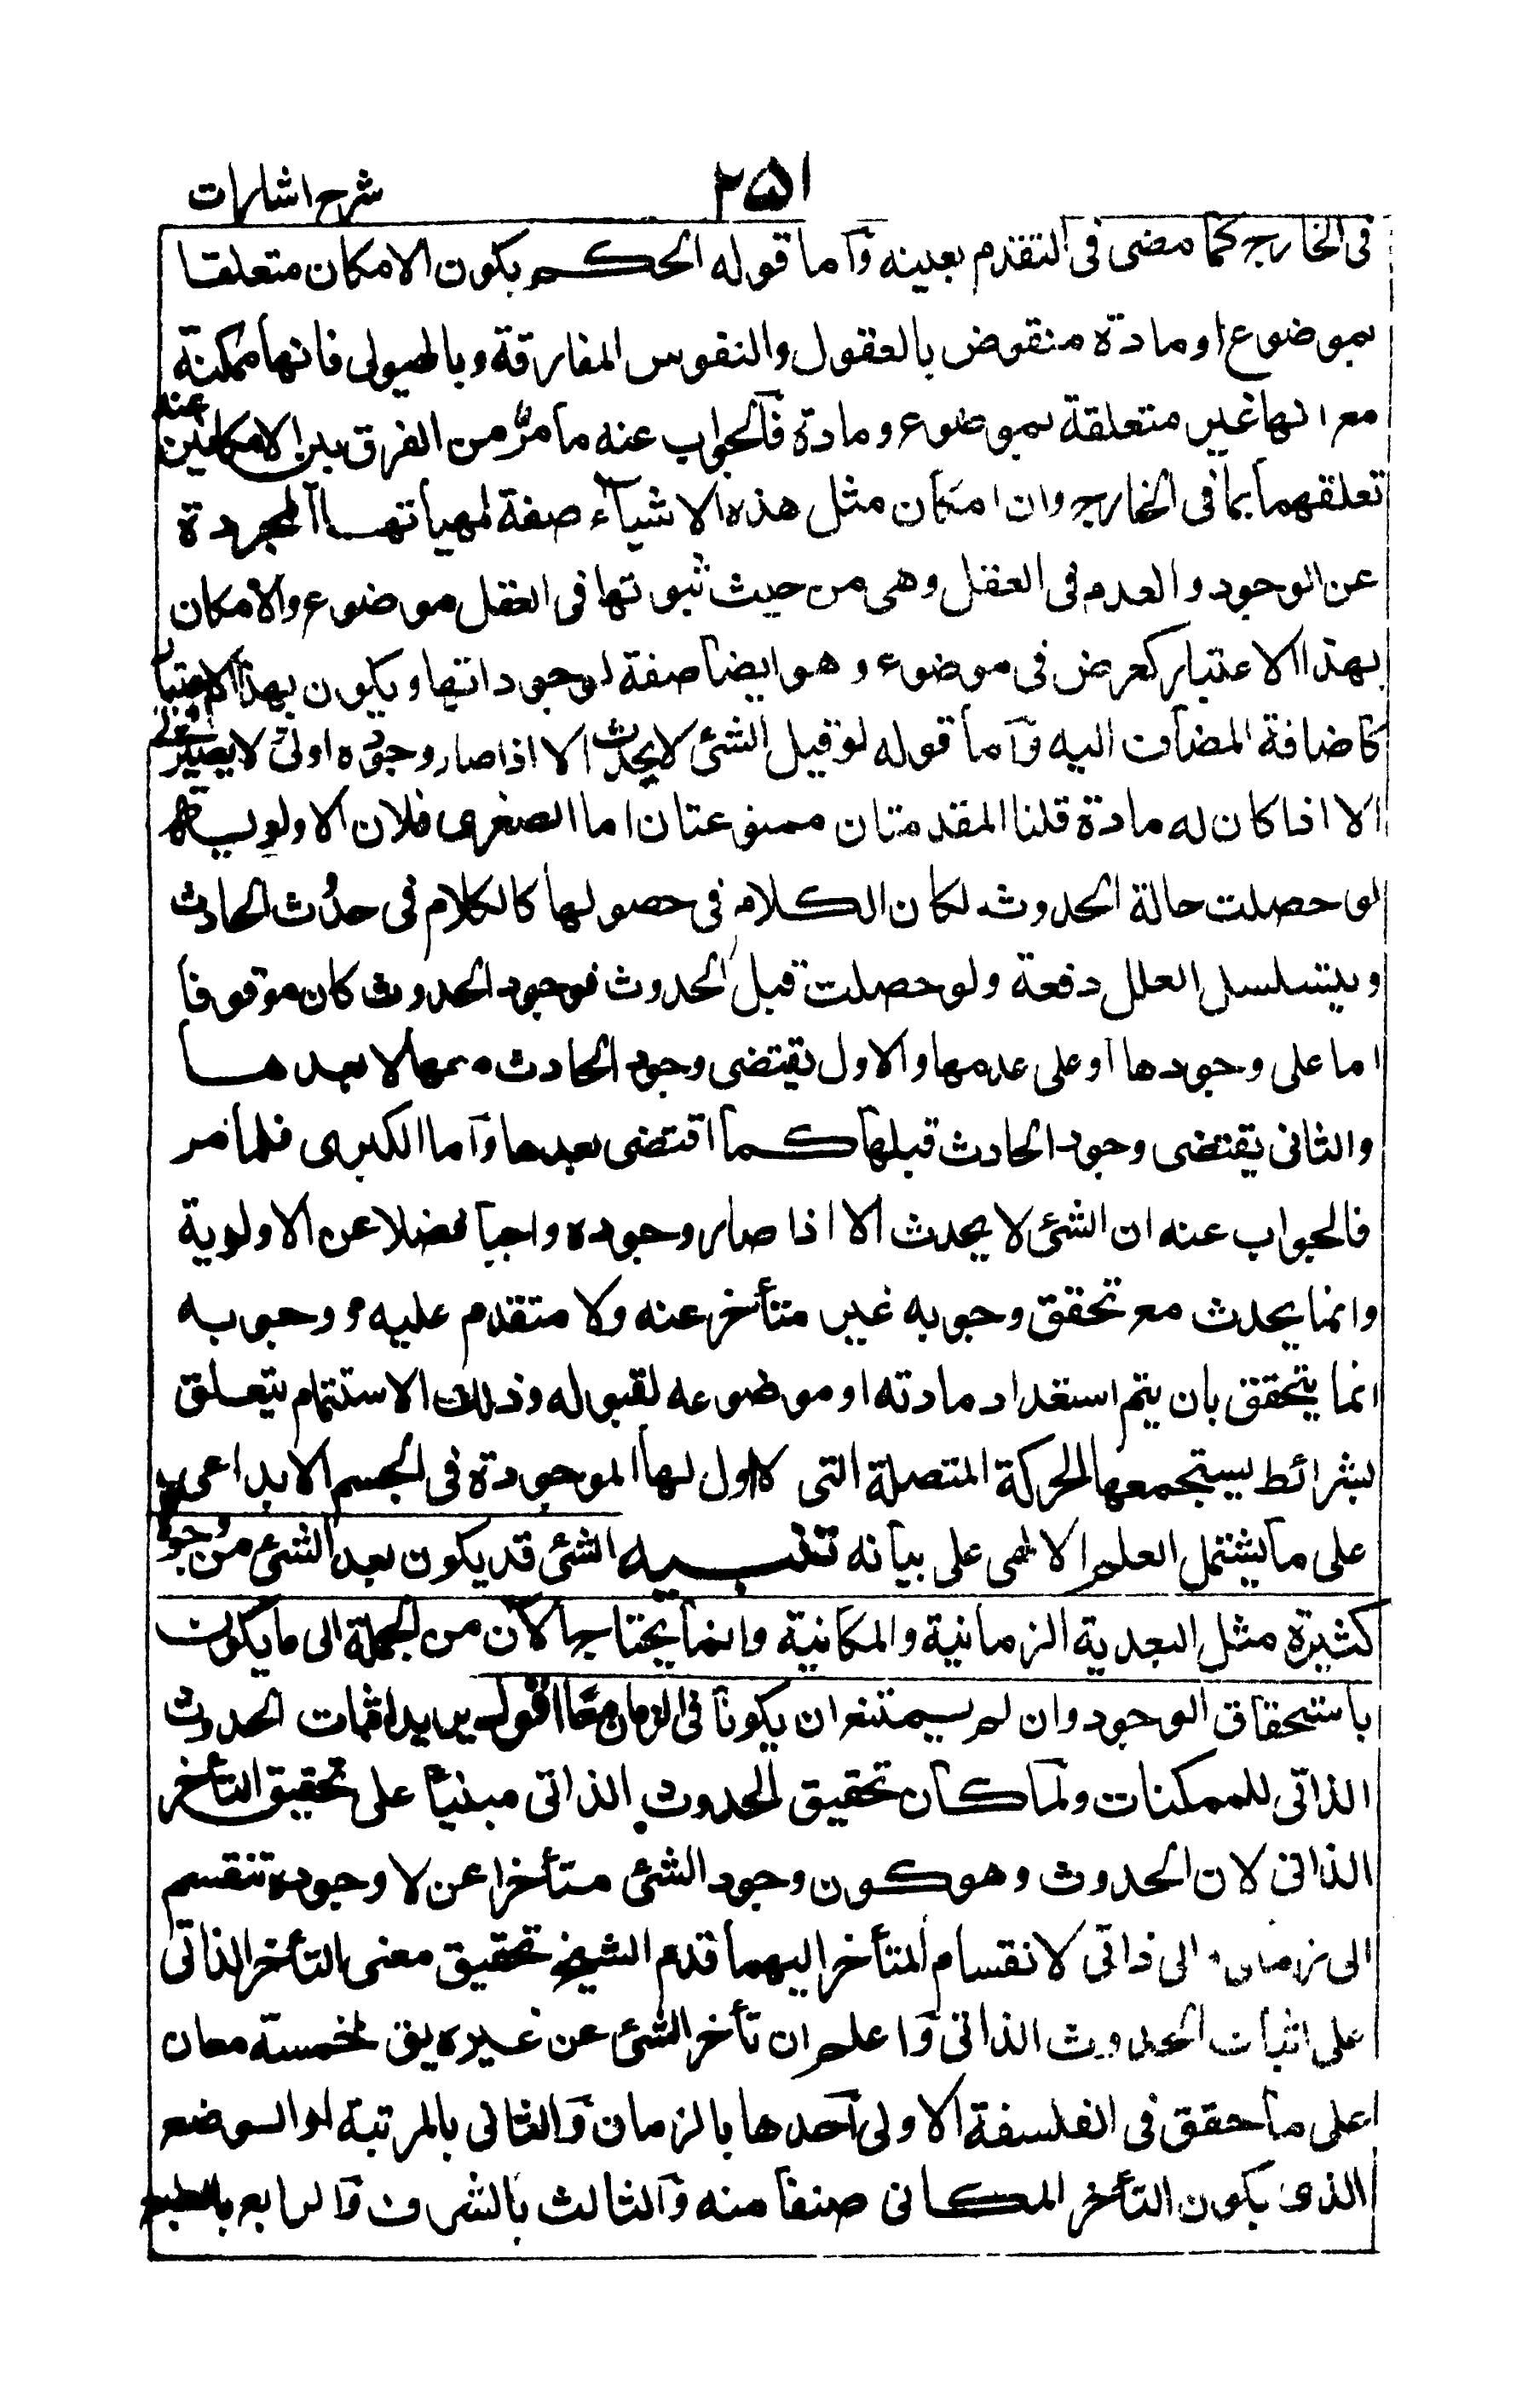 شرح اشارات
٢۵١
فى الخارج كما مضى فى التقدم بعينه وآما قوله الحكم بكون الامكان متعلقا
بموضوع او مادة منقوض بالعقول والنفوس المفارقة وبالهيولى فانها ممكنة
مع انها غير متعلقة بموضوع ومادة فالجواب عنه ما مرّ من الفرق بين الامكانين عند
تعلقهما بما فى الخارج وان امكان مثل هذه الاشيآء صفة لمهياتها المجردة
عن الوجود والعدم فى العقل وهى من حيث ثبوتها فى العقل موضوع والامكان
بهذا الاعتبار كعرض فى موضوع وهو ايضا صفة لوجوداتها ويكون بهذا الاعتبار
كاضافة المضاف اليه وآما قوله لو قيل الشئ لا يحدث الا اذا صار وجوده اولى لا يصير اولى
الا اذا كان له مادة قلنا المقدمتان ممنوعتان اما الصغرى فلان الاولوية
لو حصلت حالة الحدوث لكان الكلام فى حصولها كالكلام فى حدُث الحادث
ويتسلسل العلل دفعة ولو حصلت قبل الحدوث فوجود الحدوث كان موقوفا
اما على وجودها او على عدمها والاول يقتضى وجود الحادث معها لا بعدها
والثانى يقتضى وجود الحادث قبلها كما اقتضى بعدها وآما الكبرى فلما مر
فالجواب عنه ان الشئ لا يحدث الا اذا صار وجوده واجبا فضلا عن الاولوية
وانما يحدث مع تحقق وجوبه غير متأخر عنه ولا متقدم عليه ووجوبه
انما يتحقق بان يتم استعداد مادته او موضوعه لقبوله وذلك الاستتمام يتعلق
بشرائط يستجمعها الحركة المتصلة التى لا اول لها الموجودة فى الجسم الابداعى
على ما يشتمل العلم الالهى على بيانه تنبيه الشئ قد يكون بعد الشئ من وجوه
كثيرة مثل البعدية الزمانية والمكانية وانما يحتاج الان من الجملة الى ما يكون
باستحقاق الوجود وان لم يمتنع ان يكونا فى الزمان معًا اقول يريد اثبات الحدوث
الذاتى للممكنات ولما كان تحقيق الحدوث الذاتى مبنيًا على تحقيق التأخر
الذاتى لان الحدوث وهو كون وجود الشئ متأخرا عن لا وجوده تنقسم
الى زمانى والى ذاتى لانقسام المتأخر اليهما قدم الشيخ تحقيق معنى التأخر الذاتى
على اثبات الحدوث الذاتى وآعلم ان تأخر الشئ عن غيره يق لخمسة معان
على ما حقق فى الفلسفة الاولى آحدها بالزمان وآلثانى بالمرتبة او الوضع
الذى يكون التأخر المكانى صنفا منه وآلثالث بالشرف وآلرابع بالطبع